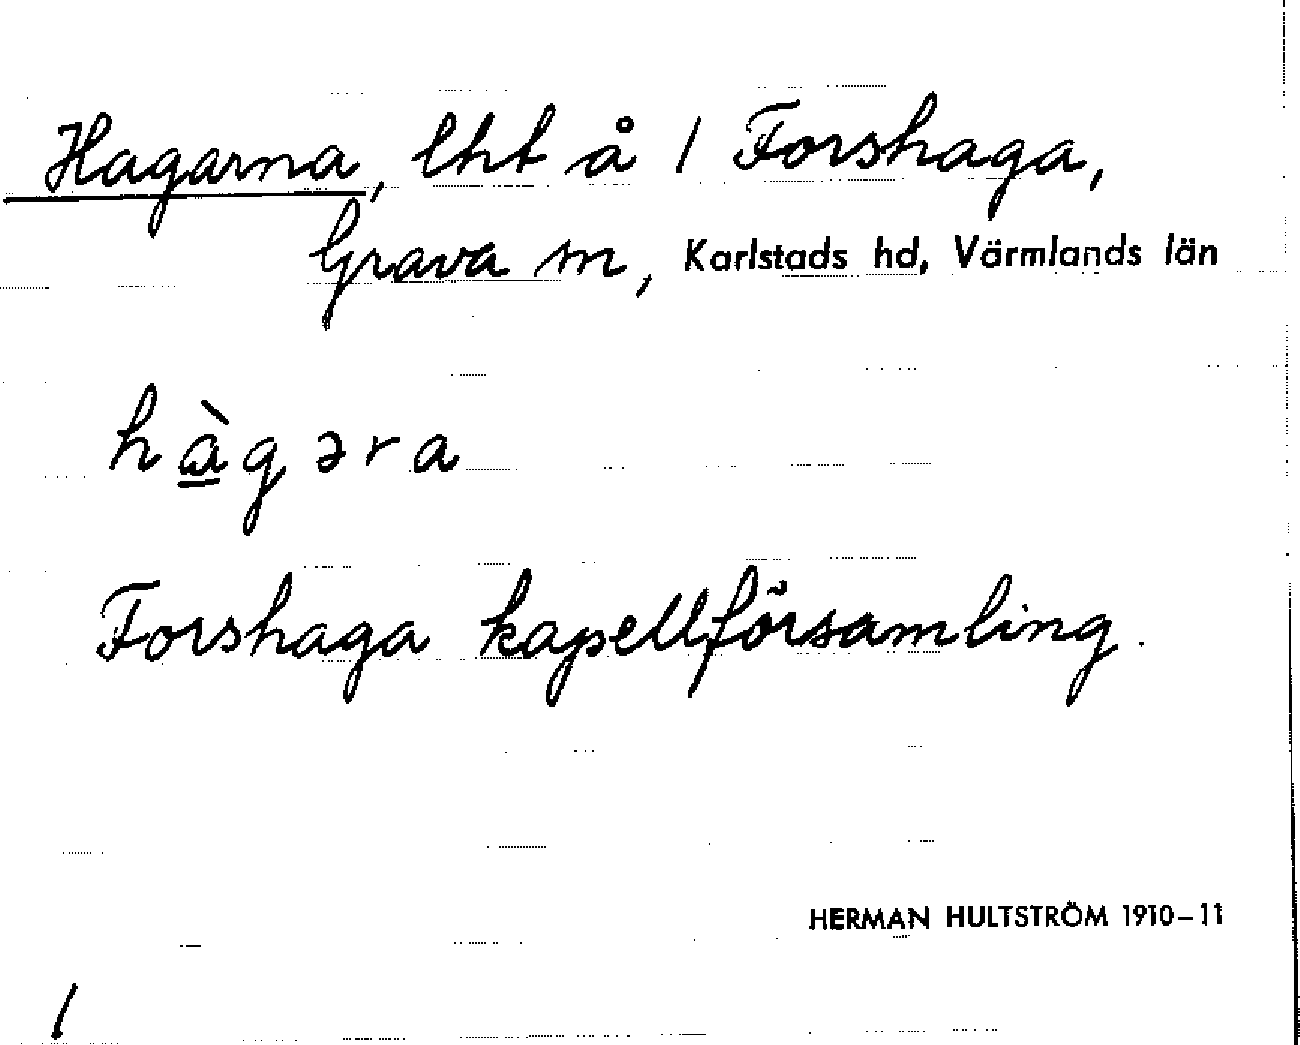 Hagarna, lht å 1 Forshaga,
Grava sn, Karlstads hd, Värmlands län
hàgəra
Forshaga kapellförsamling.
HERMAN HULTSTRÖM 1910-11
/